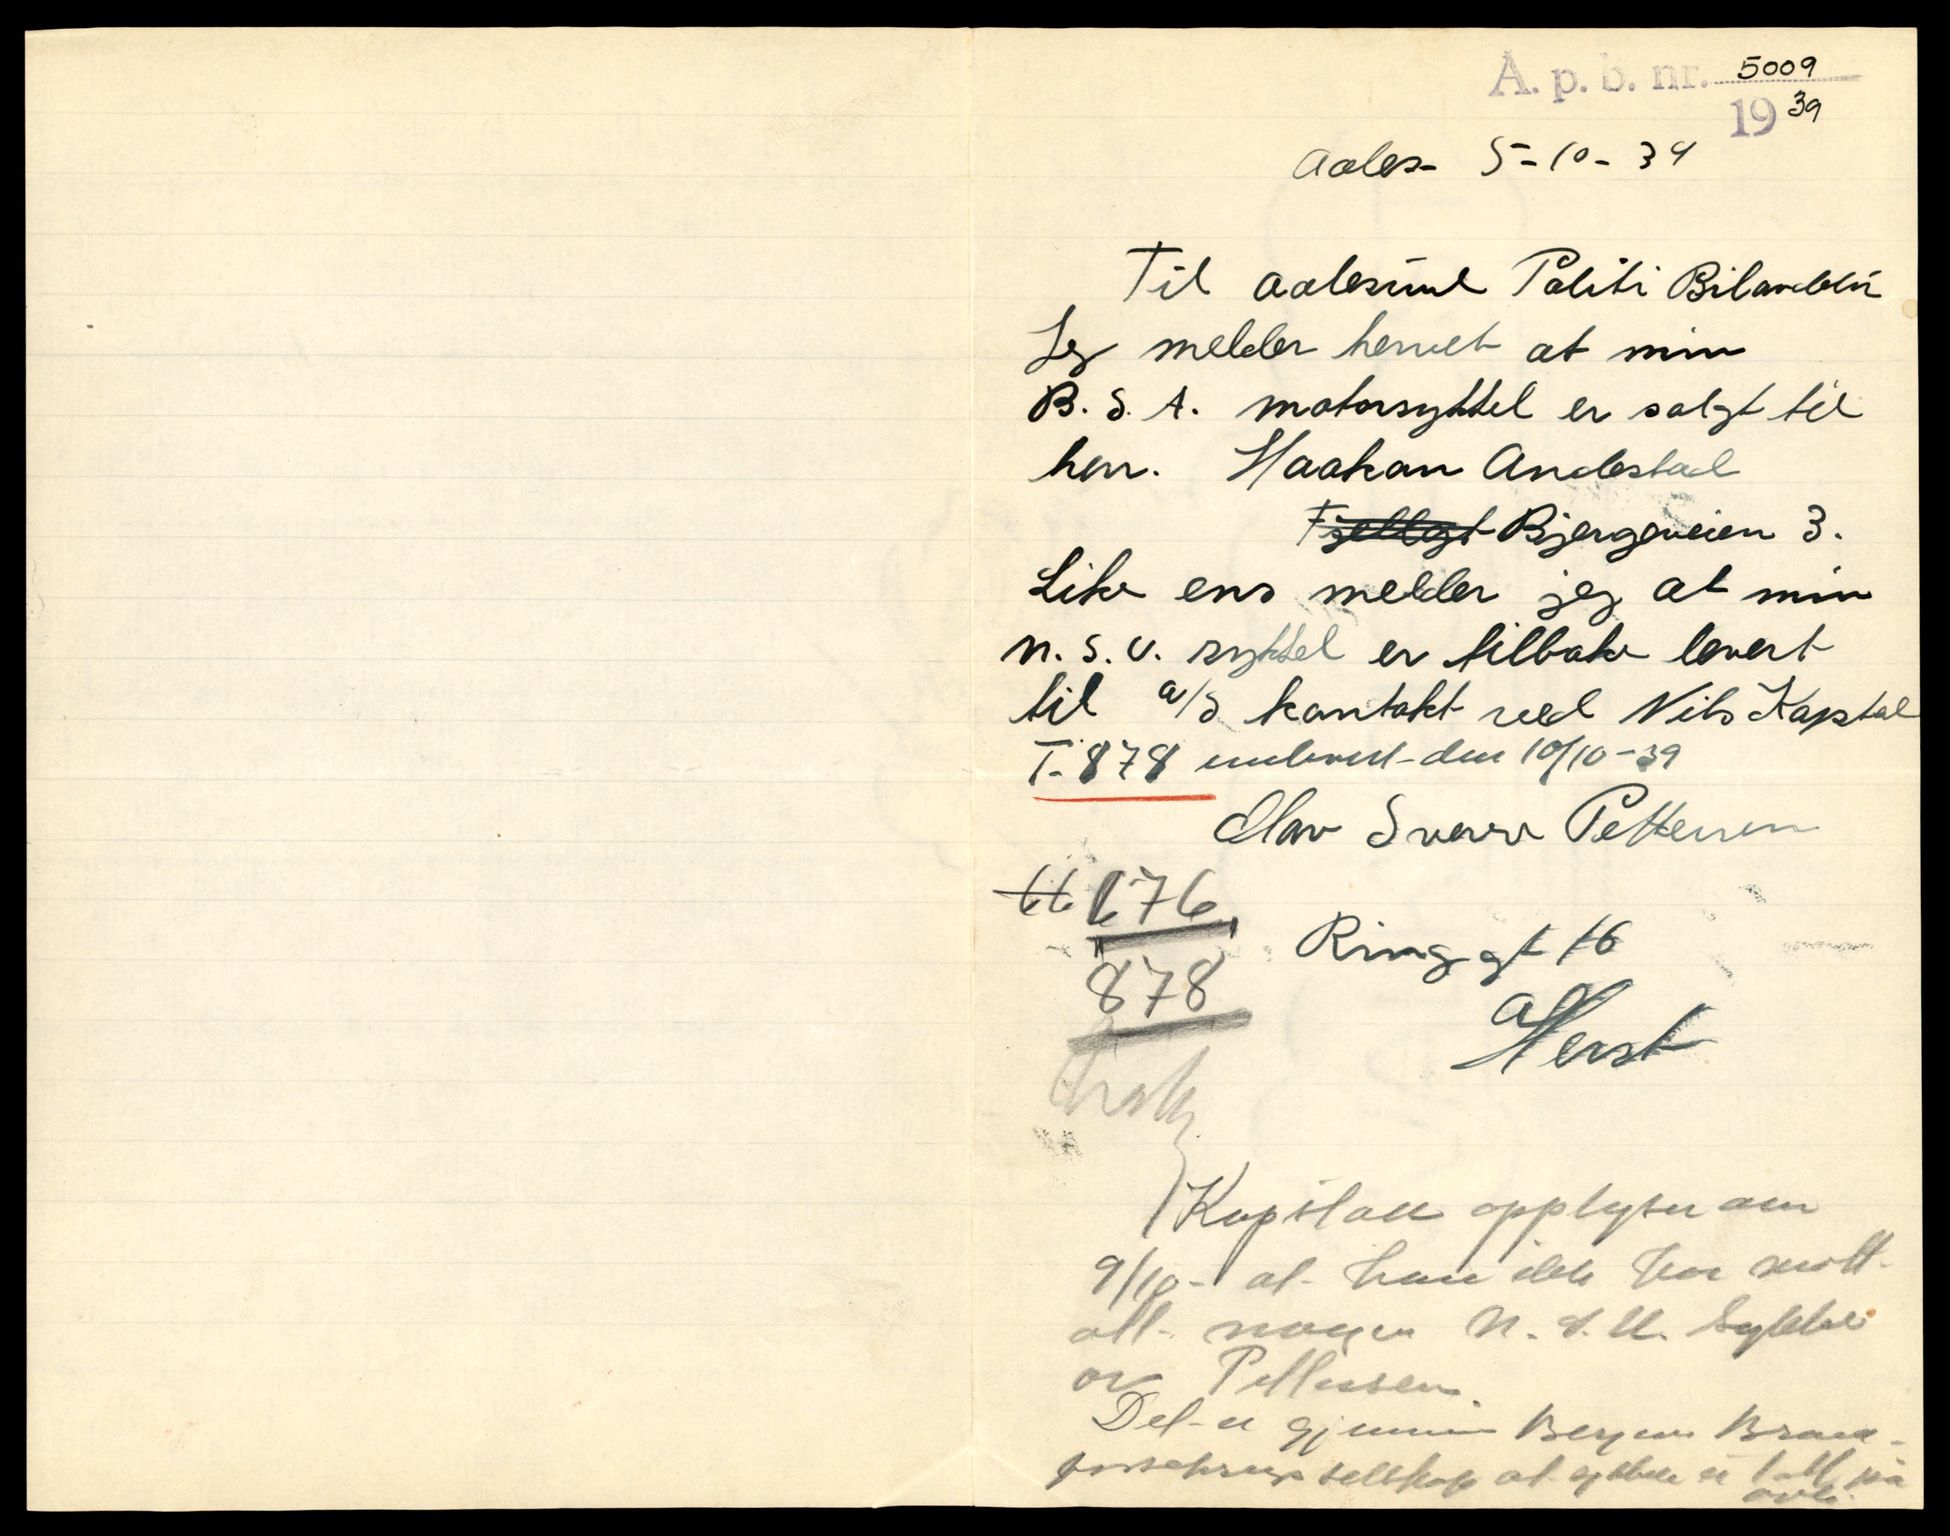 A. p. b. nr. 5009
1939
Aales- 5-10-39
Til Aalesund Politi Bilavdeln
Jeg melder hervet at min
B. S. A. motorsykkel er solgt til
herr. Haakon Andestad
Fjellgt Bjørgeveien 3.
Like ens melder jeg at min
N. S. U. sykkel er tilbake levert
til A/S kontakt ved Nils Kapstad
T- 878 innlevert den 10/10-39
Olav Sverre Pettersen
676
878
Ring gt 16
Kapstad opplyser den
9/10- at han ikke har mott-
att nogen N. S. U. Sykkel
av Pettersen.
Det er gjennem Bergens Brand-
forsikrings selskap at sykkelen er tatt